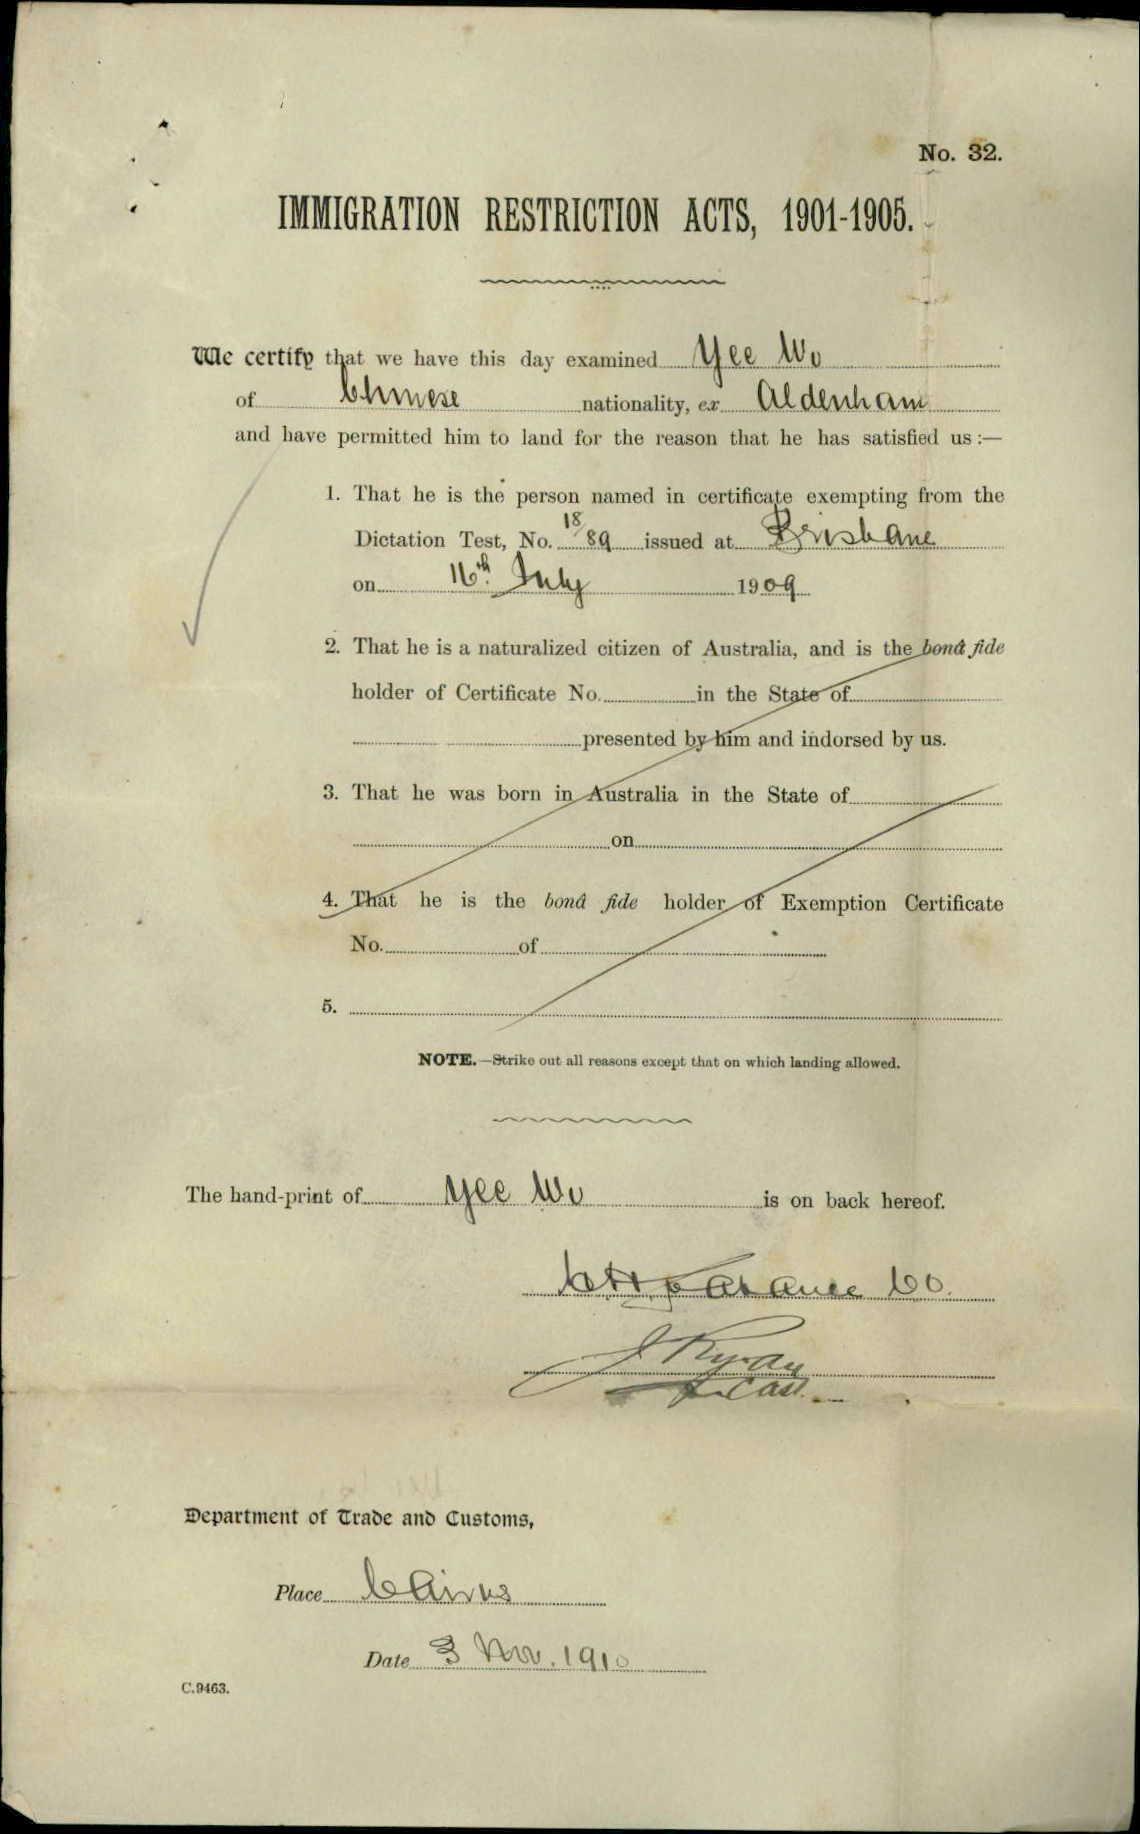 No. 32.
IMMIGRATION RESTRICTION ACTS, 1901-1905.
We certify that we have this day examined Yee Wo
of Chinese nationality, ex Aldenham
and have permitted him to land for the reason that he has satisfied us :—
1. That he is the person named in certificate exempting from the
Dictation Test, No. 18/89 issued at Brisbane
on 16th July 1909
2. That he is a naturalized citizen of Australia, and is the bonâ fide
holder of Certificate No. in the State of
presented by him and indorsed by us.
3. That he was born in Australia in the State of
on
4. That he is the bonâ fide holder of Exemption Certificate
No. of
5.
NOTE.—Strike out all reasons except that on which landing allowed.
The hand-print of Yee Wo is on back hereof.
J Ryan
Department of Trade and Customs,
Place Cairns
Date 3 Nov. 1910
C.9463.